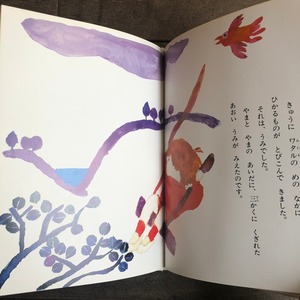 きゅうに ワタルの めの なかに
ひかるものが とびこんで きました。
それは、うみでした。
やまと やまの あいだに、三かくに くぎれた
あおい うみが みえたのです。